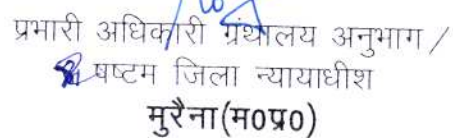 प्रभारी अधिकारी ग्रंथालय अनुभाग /
षष्टम जिला न्यायाधीश
मुरैना(म0प्र0)